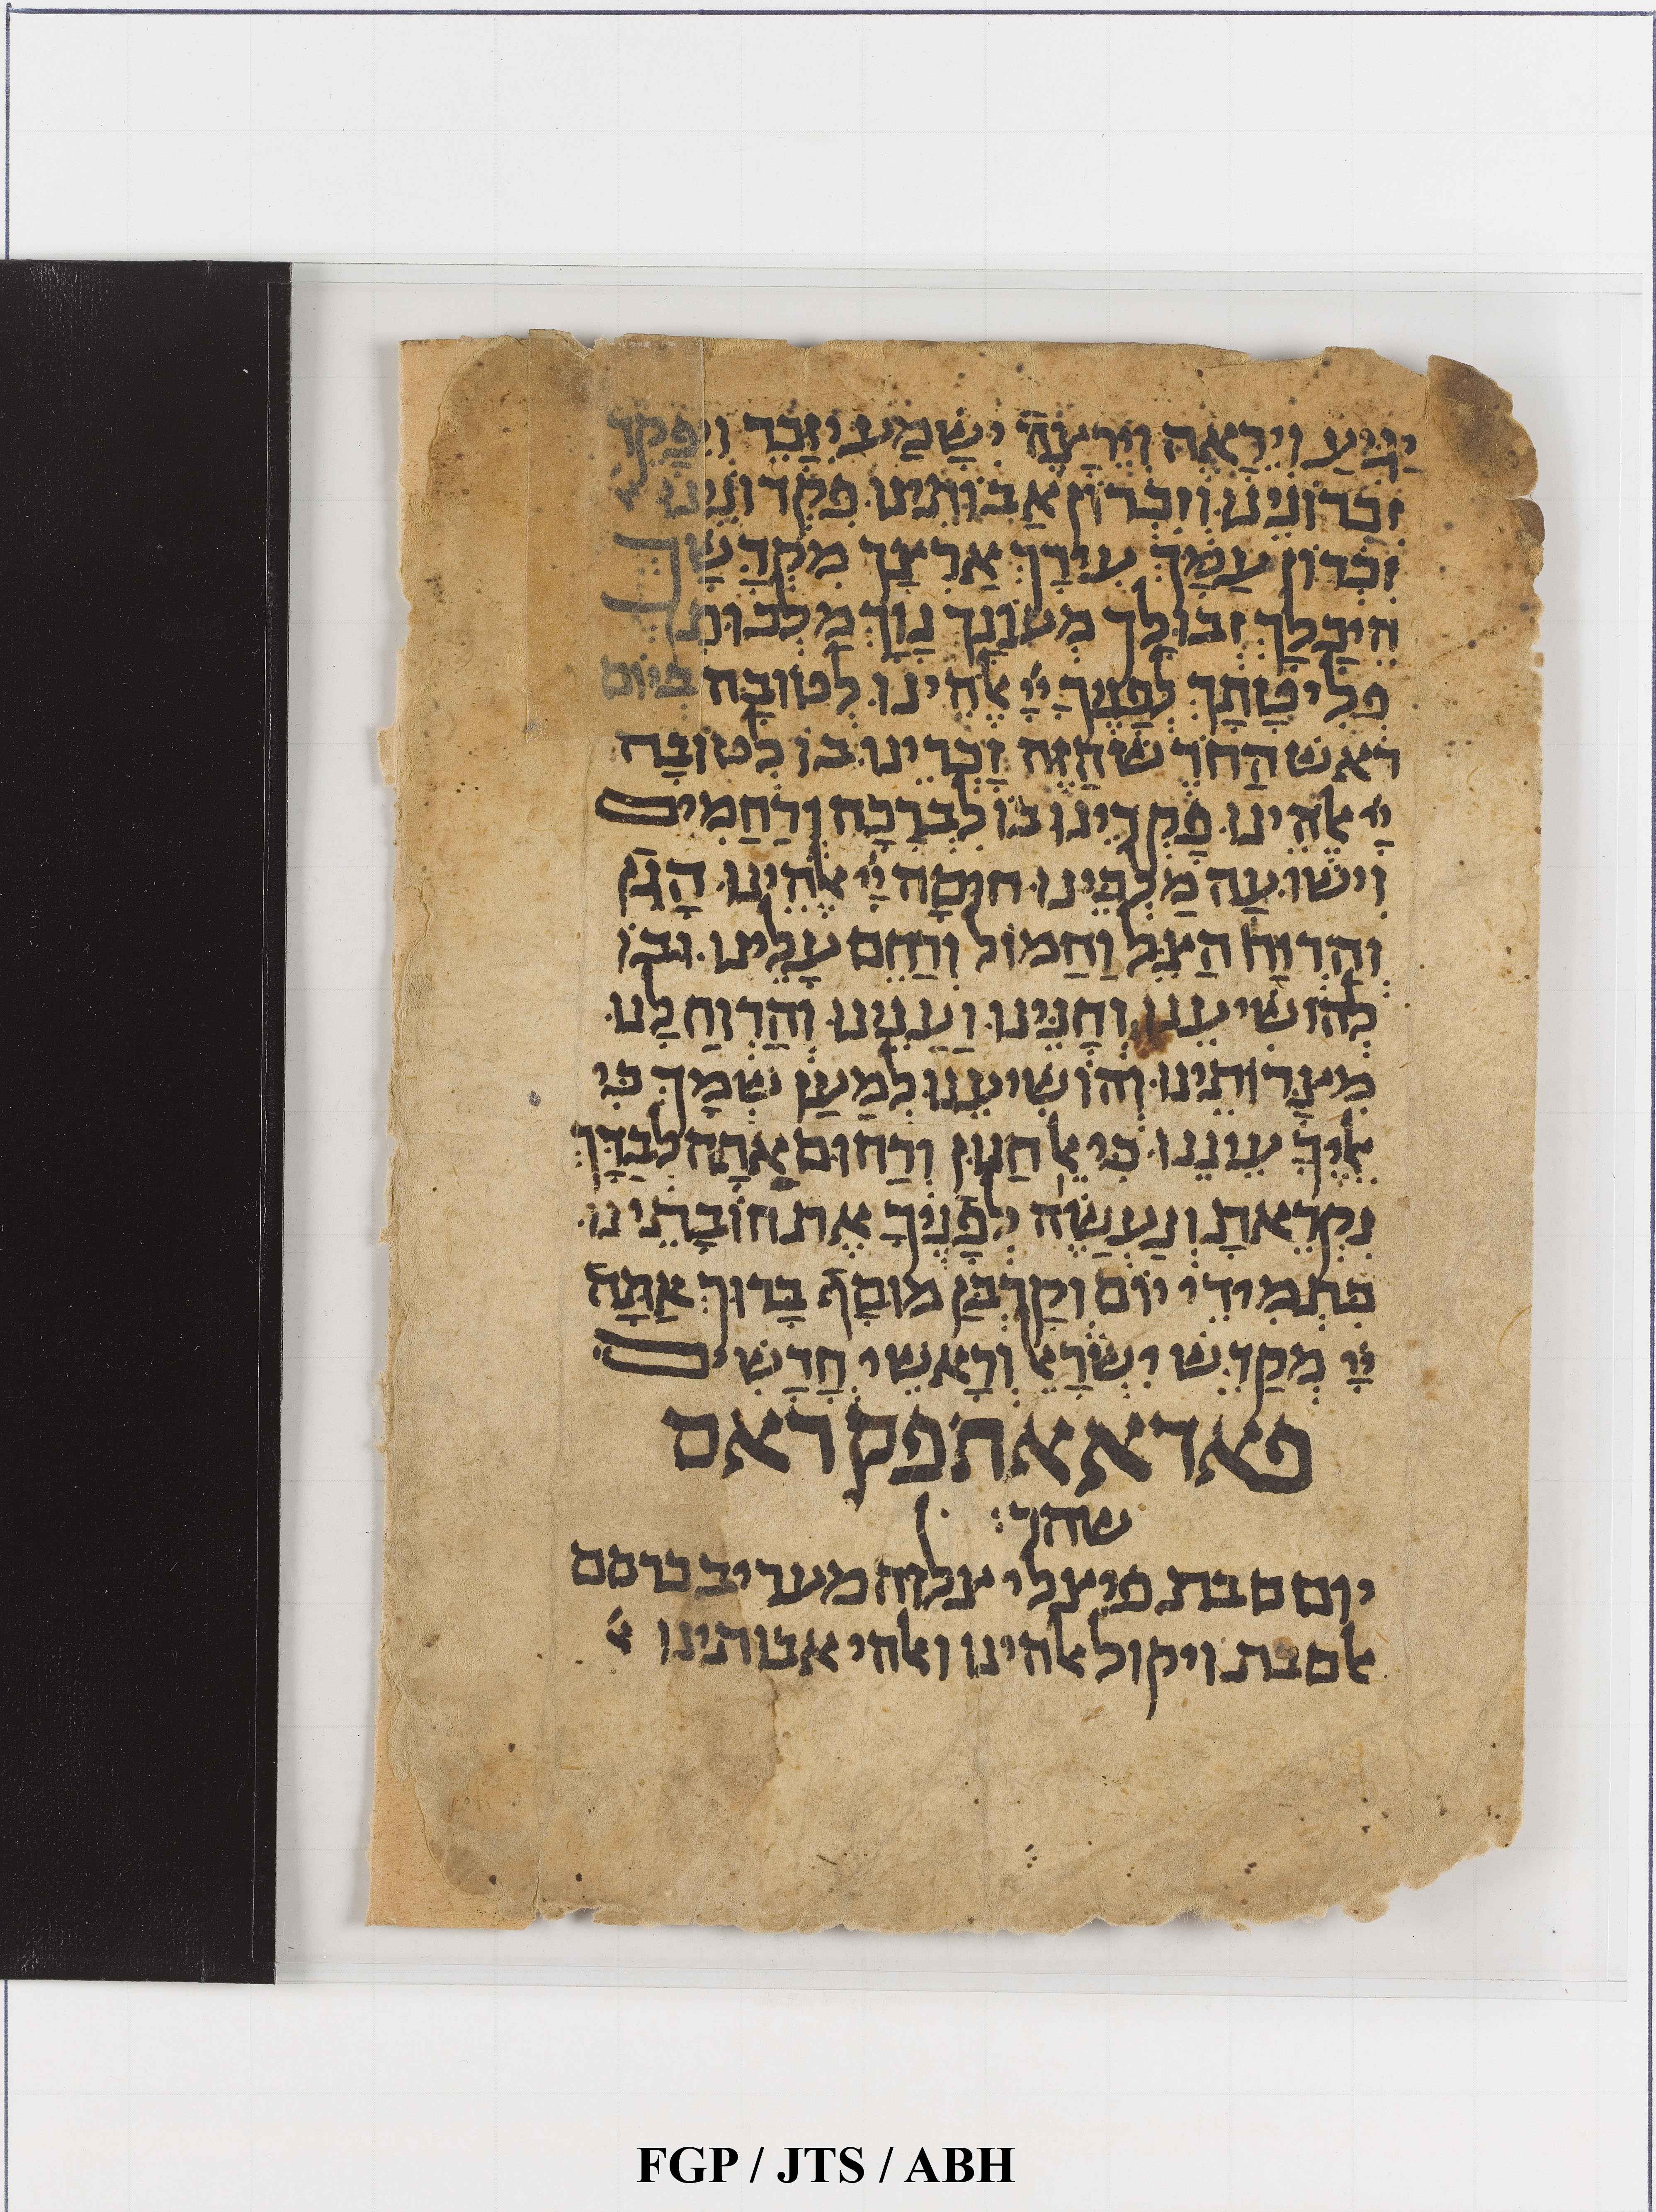 יַגִּיעַ וְיֵרָאֶה וְיֵרָצֶה יִשָּׁמַע יִזָּכֵר וְיִפָּקֵד
זִכְרוֹנֵינוּ וְזִכְרוֹן אֲבוֹתֵינוּ פִּקְדוֹנֵינוּ
זִכְרוֹן עַמָּךְ עִירָךְ אַרְצָךְ מִקְדָּשָׁךְ
הֵיכָלָךְ זְבוּלָךְ מְעוֹנָךְ נָוָךְ מַלְכוּתָךְ
פְּלֵיטָתָךְ לְפָנֶיךָ יְיָ אֱלֹהֵינוּ לְטוֹבָה בְּיוֹם
רֹאשׁ הַחֹדֶשׁ הַזֶּה זָכְרֵינוּ בוֹ לְטוֹבָה
יְיָ אֱלֹהֵינוּ פָּקְדֵינוּ בוֹ לִבְרָכָה וְרַחֲמִים
וִישׁוּעָה מַלְכֵּינוּ חוּסָה יְיָ אֱלֹהֵינוּ הָגֵן
וְהַרְוַח הַצֵּל וַחֲמוֹל וְרַחֵם עָלֵינוּ וּבוֹ
לְהוֹשִׁיעֵנוּ וְחָנֵּינוּ וַעֲנֵינוּ וְהַרְוַח לַנוּ
מִצָּרוֹתֵינוּ וְהוֹשִׁיעֵנוּ לְמַעַן שְׁמָךְ כִּי
אֵלֶיךָ עֵינֵנוּ כִּי אֵל חַנּוּן וְרַחוּם אַתָּה לְבַדָּךְ
נִקְרֵאתַ וְנַעֲשֶׂה לְפָנֶיךָ אֶת חוֹבָתֵינוּ
כִּתְמִידֵי יוֹם וְקָרְבַּן מוּסַף בָּרוּךְ אַתָּה
יְיָ מְקַדֵּשׁ יִשְׂרָאֵל וְרָאשֵׁי חֳדָשִׁים
פאדא אתפק ראס
שהר
יום סבת פיצלי צלוה מעריב ברסם
אלסבת ויקול אלהינו ואלהי אבותינו